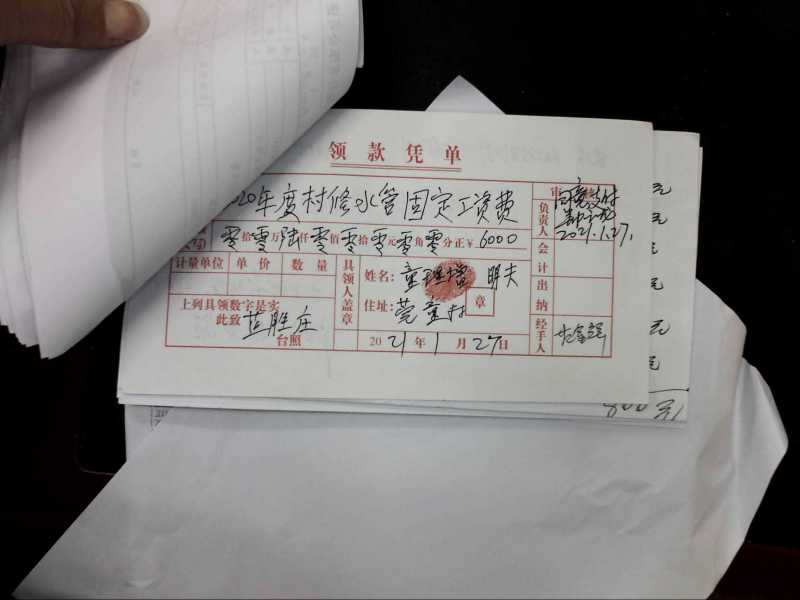 领款凭单
020年度村修水管固定工资费
零拾零万陆仟零佰零拾零元零角零分正¥6000
计量单位 单价 数量
上列具领数字是实
此致 蓝胜庄
台照
具领人盖章
姓名: 童理增 明夫
住址: 莞童村
章
2021年1月27日
审
同意支付
2021.1.27.
负责人
会计
出纳
经手人
元
元
元
元
元
800元